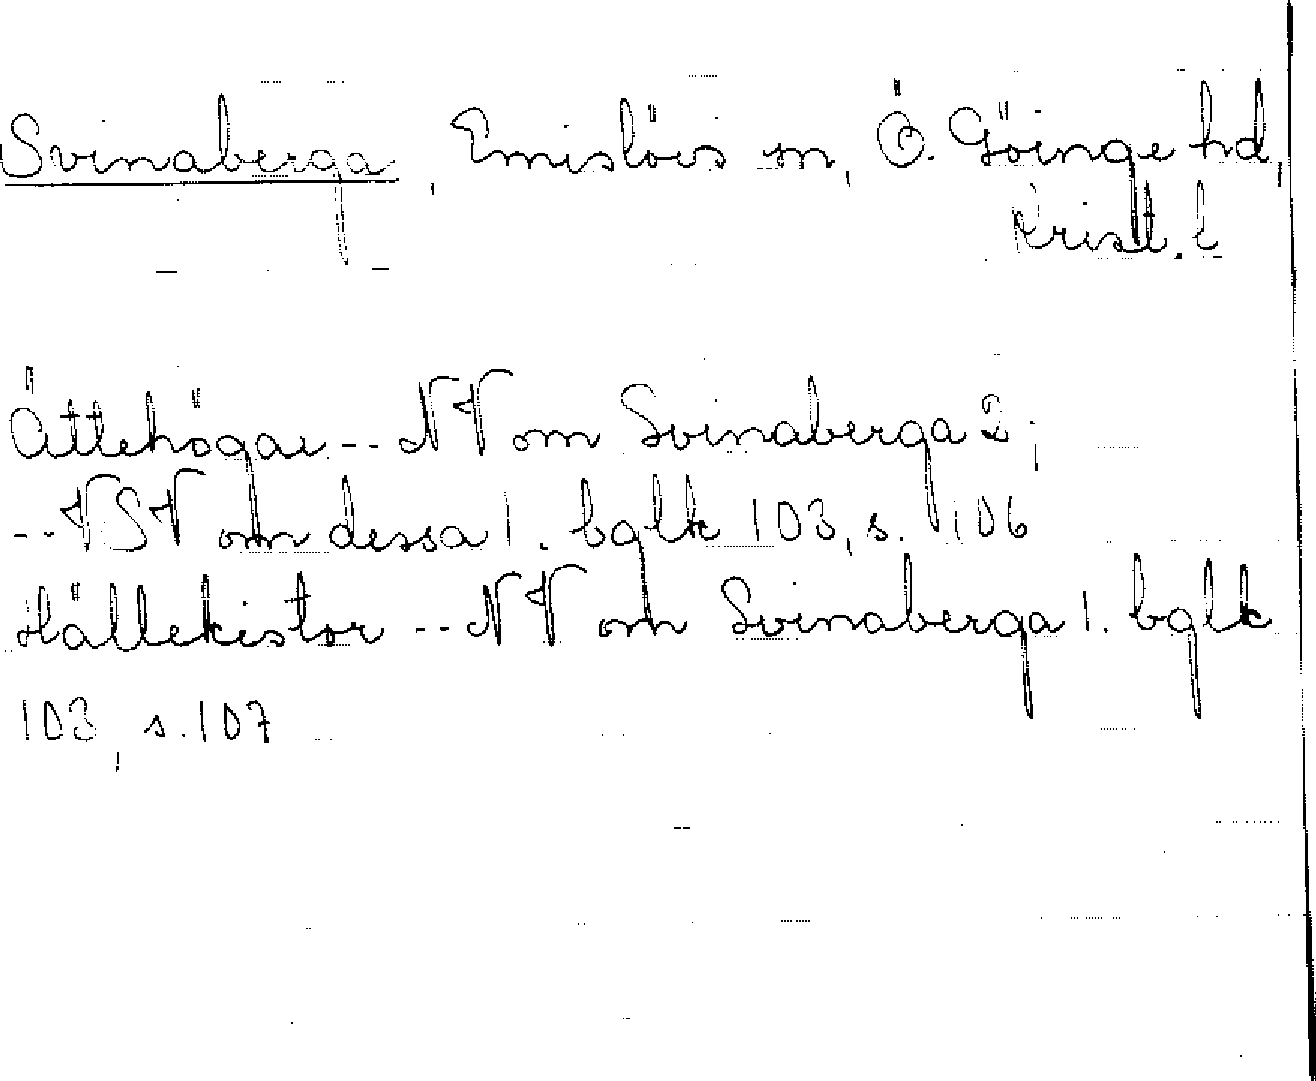 Svinaberga, Emislövs sn, Ö. Göinge hd,
Krist. l
Ättehögar -- NV om Svinaberga 2;
-- VSV om dessa 1. bglk 103, s. 106
Hällekistor -- NV om Svinaberga 1. bglk
103, s. 107